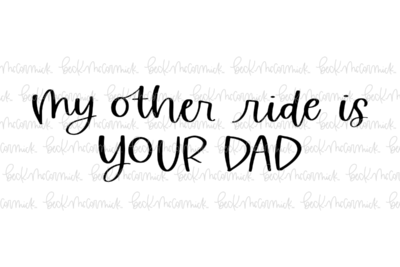 my other ride is
YOUR DAD